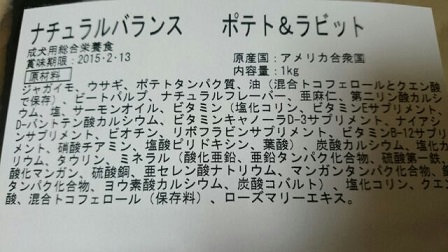 ナチュラルバランス　ポテト＆ラビット
成犬用総合栄養食
賞味期限：2015・2・13
原産国：アメリカ合衆国
内容量：1kg
原材料
ジャガイモ、ウサギ、ポテトタンパク質、油（混合トコフェロールとクエン酸
で保存）、ビートパルプ、ナチュラルフレーバー、亜麻仁、第二リン酸カルシ
ウム、塩、サーモンオイル、ビタミン（塩化コリン、ビタミンEサプリメン
D-パントテン酸カルシウム、ビタミンキャノーラD-3サプリメント、ナイアシ
ンサプリメント、ビオチン、リボフラビンサプリメント、ビタミンB-12サプリ
メント、硝酸チアミン、塩酸ピリドキシン、葉酸）、炭酸カルシウム、塩化カ
リウム、タウリン、ミネラル（酸化亜鉛、亜鉛タンパク化合物、硫酸第一鉄、
酸化マンガン、硫酸銅、亜セレン酸ナトリウム、マンガンタンパク化合物、
タンパク化合物、ヨウ素酸カルシウム、炭酸コバルト）、塩化コリン、クエン
酸、混合トコフェロール（保存料）、ローズマリーエキス。